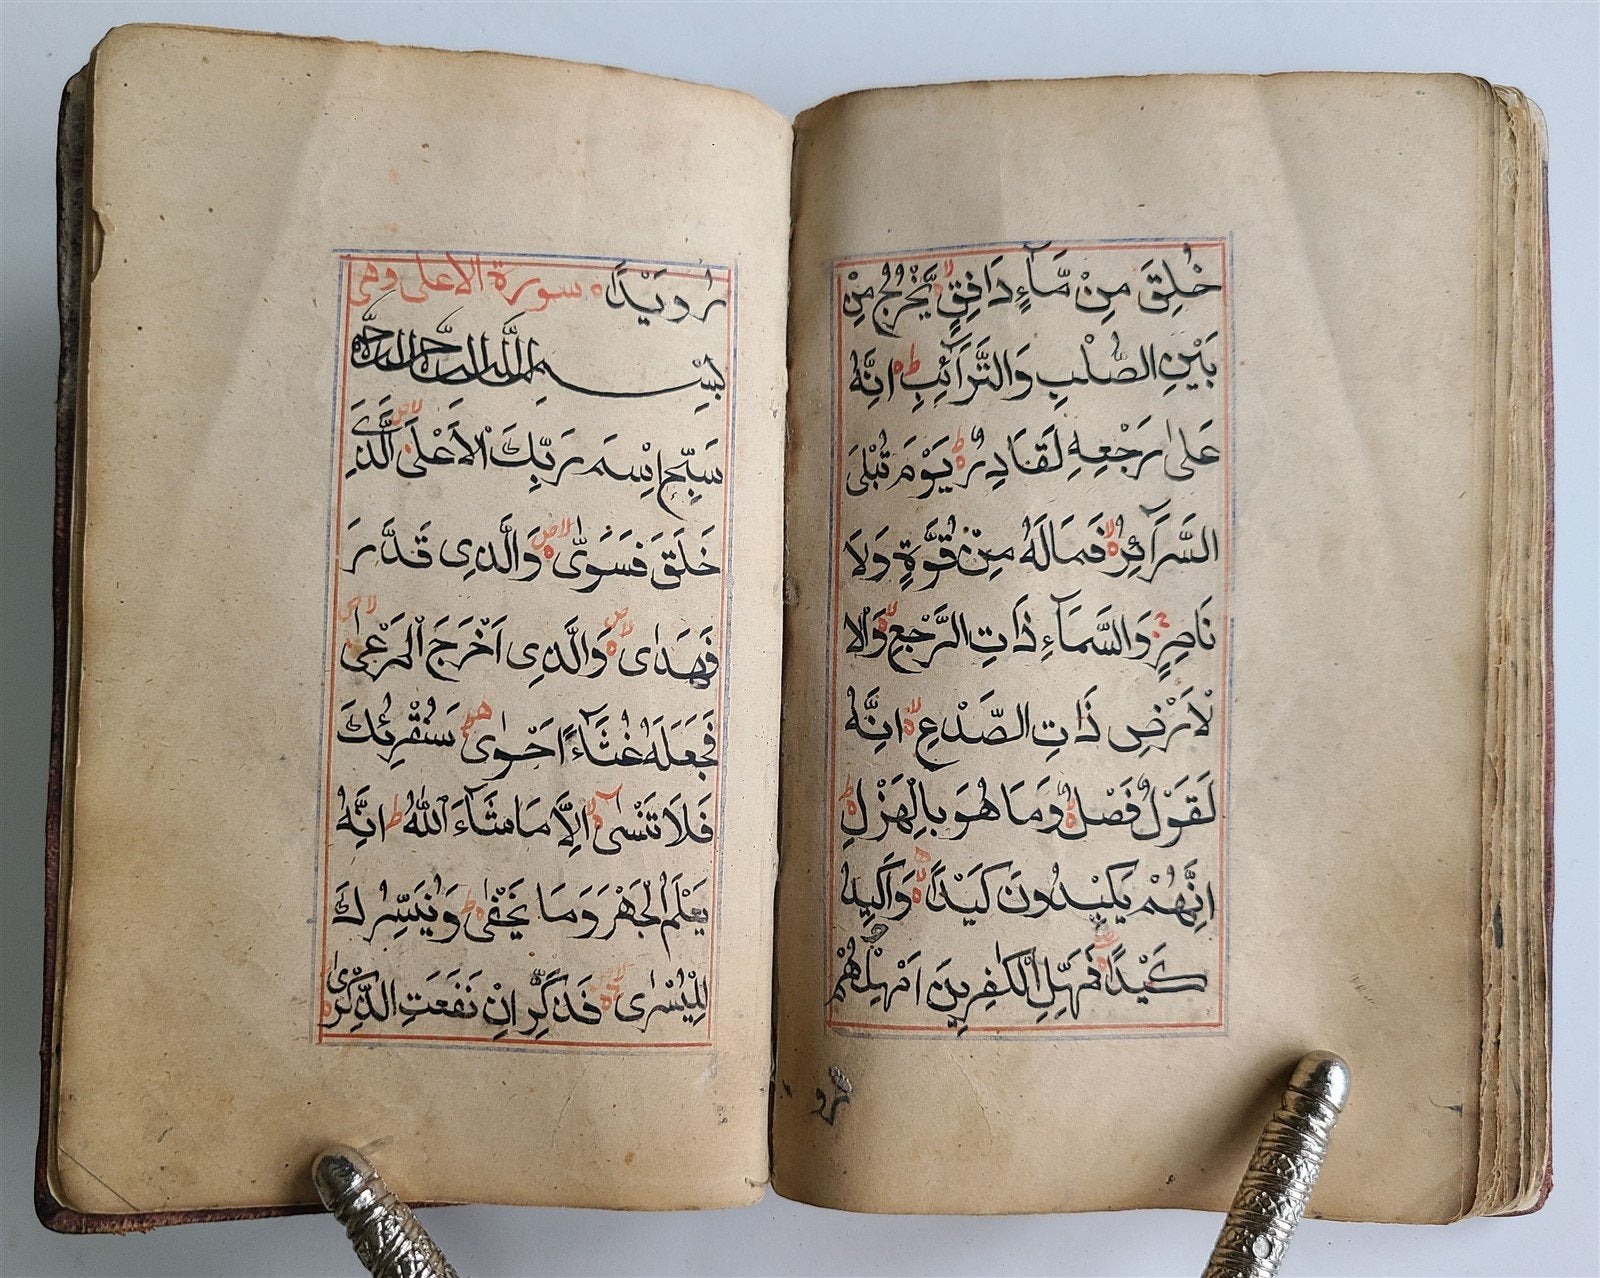 خُلِقَ مِنْ مَّآءٍ دَافِقٍ لا يَّخْرُجُ مِنْ
بَيْنِ الصُّلْبِ وَالتَّرَآئِبِ ط اِنَّهُ
عَلٰى رَجْعِهِ لَقَادِرٌ ط يَوْمَ تُبْلَى
السَّرَآئِرُ لا فَمَالَهُ مِنْ قُوَّةٍ وَلَا
نَاصِرٍ وَالسَّمَآءِ ذَاتِ الرَّجْعِ لا وَالْا
لْاَرْضِ ذَاتِ الصَّدْعِ لا اِنَّهُ
لَقَوْلٌ فَصْلٌ لا وَمَا هُوَ بِالْهَزْلِ ط
اِنَّهُمْ يَكِيْدُونَ كَيْدًا لا وَاَكِيْدُ
كَيْدًا فَمَهِّلِ الْكٰفِرِينَ اَمْهِلْهُمْ
رو
رُوَيْدًا سورة الاعلى وهى
بِسْمِ اللَّهِ الرَّحْمٰنِ الرَّحِيْمِ
سَبِّحِ اسْمَ رَبِّكَ الْاَعْلَى لا الَّذِى
خَلَقَ فَسَوّٰى لا ص وَالَّذِى قَدَّرَ
فَهَدٰى لا ص وَالَّذِى اَخْرَجَ الْمَرْعٰى لا ص
فَجَعَلَهُ غُثَآءً اَحْوٰى ط سَنُقْرِئُكَ
فَلَا تَنْسٰى لا اِلَّا مَا شَآءَ اللّٰهُ ط اِنَّهُ
يَعْلَمُ الْجَهْرَ وَمَا يَخْفٰى ط وَنُيَسِّرُكَ
لِلْيُسْرٰى فَذَكِّرْ اِنْ نَفَعَتِ الذِّكْرٰى